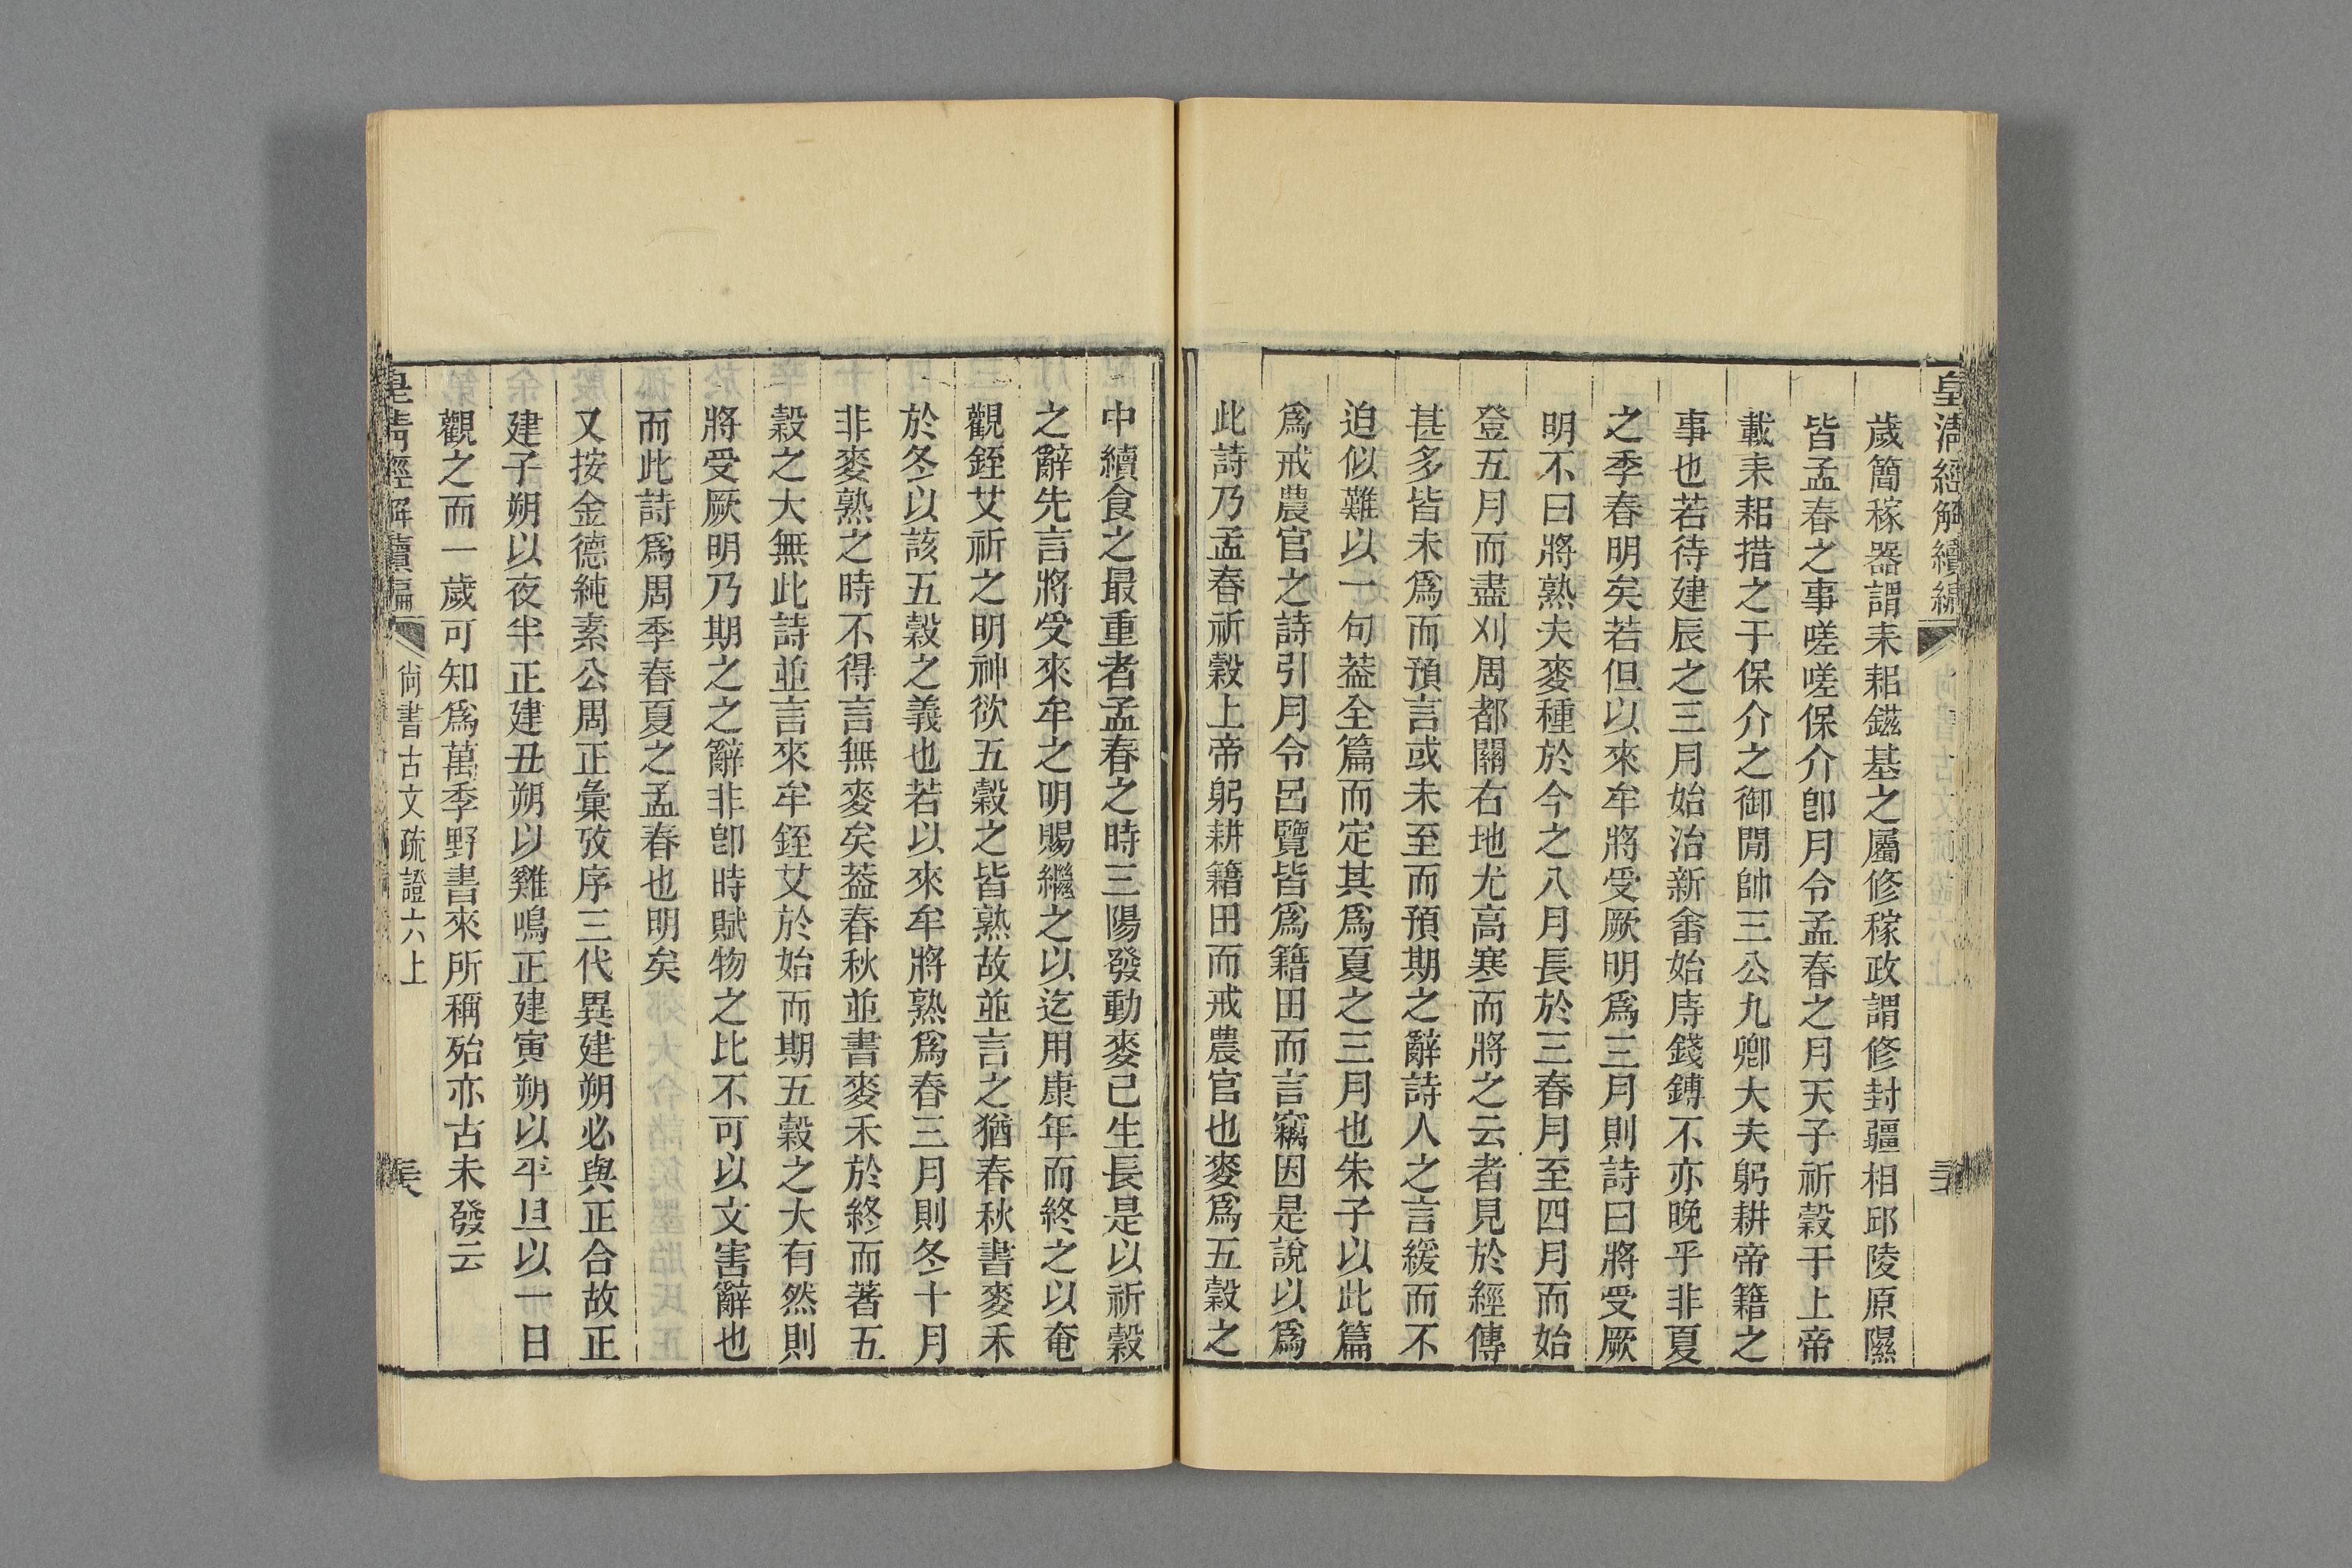 皇清經解續編
歲簡稼器謂耒耜鎡基之屬修稼政謂修封疆相邱陵原隰
皆孟春之事嗟嗟保介卽月令孟春之月天子祈穀于上帝
載耒耜措之于保介之御閒帥三公九卿大夫躬耕帝籍之
事也若待建辰之三月始治新畬始庤錢鎛不亦晚乎非夏
之季春明矣若但以來牟將受厥明爲三月則詩曰將受厥
明不曰將熟夫麥種於今之八月長於三春月至四月而始
登五月而盡刈周都關右地尤高寒而將之云者見於經傳
甚多皆未爲而預言或未至而預期之辭詩人之言緩而不
迫似難以一句葢全篇而定其爲夏之三月也朱子以此篇
爲戒農官之詩引月令呂覽皆爲籍田而言竊因是說以爲
此詩乃孟春祈穀上帝躬耕籍田而戒農官也麥爲五穀之
中續食之最重者孟春之時三陽發動麥已生長是以祈穀
之辭先言將受來牟之明賜繼之以迄用康年而終之以奄
觀銍艾祈之明神欲五穀之皆熟故並言之猶春秋書麥禾
於冬以該五穀之義也若以來牟將熟爲春三月則冬十月
非麥熟之時不得言無麥矣葢春秋並書麥禾於終而著五
穀之大無此詩並言來牟銍艾於始而期五穀之大有然則
將受厥明乃期之之辭非卽時賦物之比不可以文害辭也
而此詩爲周季春夏之孟春也明矣
又按金德純素公周正彙攷序三代異建朔必與正合故正
建子朔以夜半正建丑朔以雞鳴正建寅朔以平旦以一日
觀之而一歲可知爲萬季野書來所稱殆亦古未發云
皇清經解續編
尚書古文疏證六上